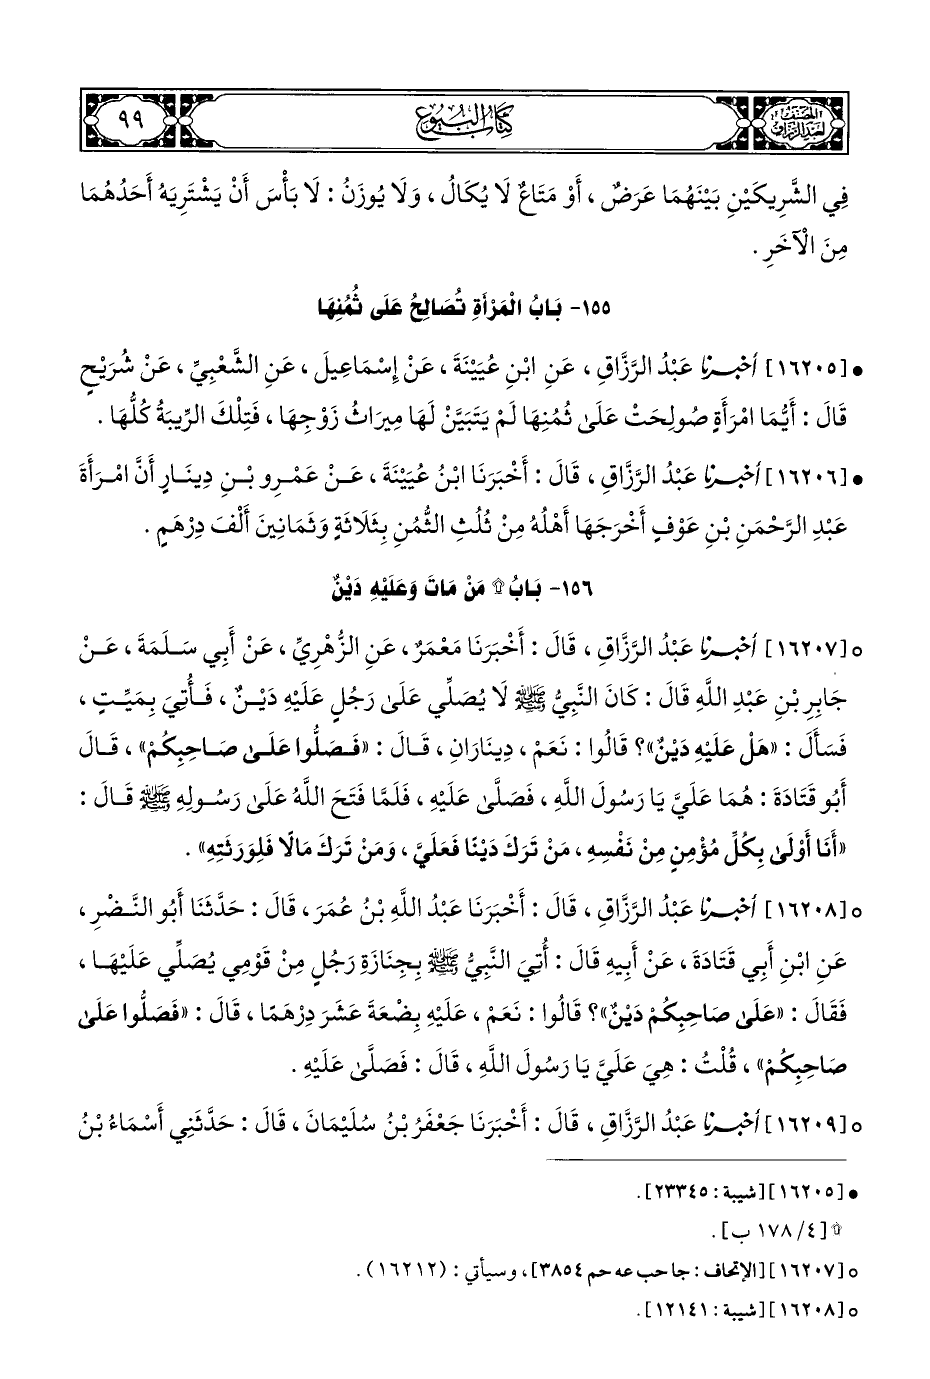 المصنف
لعبد الرزاق
كتاب البيوع
٩٩
فِي الشَّرِيكَيْنِ بَيْنَهُمَا عَرَضٌ ، أَوْ مَتَاعٌ لَا يُكَالُ ، وَلَا يُوزَنُ : لَا بَأْسَ أَنْ يَشْتَرِيَهُ أَحَدُهُمَا
مِنَ الْآخَرِ .
١٥٥- بَابُ الْمَرْأَةِ تُصَالِحُ عَلَى ثُمُنِهَا
• [١٦٢٠٥] أخبرنا عَبْدُ الرَّزَّاقِ ، عَنِ ابْنِ عُيَيْنَةَ ، عَنْ إِسْمَاعِيلَ ، عَنِ الشَّعْبِيِّ ، عَنْ شُرَيْحٍ
قَالَ : أَيُّمَا امْرَأَةٍ صُولِحَتْ عَلَىٰ ثُمُنِهَا لَمْ يَتَبَيَّنْ لَهَا مِيرَاثُ زَوْجِهَا ، فَتِلْكَ الرِّيبَةُ كُلُّهَا .
• [١٦٢٠٦] أخبرنا عَبْدُ الرَّزَّاقِ ، قَالَ : أَخْبَرَنَا ابْنُ عُيَيْنَةَ ، عَنْ عَمْرِو بْنِ دِينَارٍ أَنَّ امْرَأَةَ
عَبْدِ الرَّحْمَنِ بْنِ عَوْفٍ أَخْرَجَهَا أَهْلُهُ مِنْ ثُلُثِ الثُّمُنِ بِثَلَاثَةٍ وَثَمَانِينَ أَلْفَ دِرْهَمٍ .
١٥٦- بَابُ ۩ مَنْ مَاتَ وَعَلَيْهِ دَيْنٌ
○ [١٦٢٠٧] أخبرنا عَبْدُ الرَّزَّاقِ ، قَالَ : أَخْبَرَنَا مَعْمَرٌ ، عَنِ الزُّهْرِيِّ ، عَنْ أَبِي سَلَمَةَ ، عَنْ
جَابِرِ بْنِ عَبْدِ اللَّهِ قَالَ : كَانَ النَّبِيُّ ﷺ لَا يُصَلِّي عَلَىٰ رَجُلٍ عَلَيْهِ دَيْنٌ ، فَأُتِيَ بِمَيِّتٍ ،
فَسَأَلَ : «هَلْ عَلَيْهِ دَيْنٌ»؟ قَالُوا : نَعَمْ ، دِينَارَانِ ، قَالَ : «فَصَلُّوا عَلَىٰ صَاحِبِكُمْ» ، قَالَ
أَبُو قَتَادَةَ : هُمَا عَلَيَّ يَا رَسُولَ اللَّهِ ، فَصَلَّىٰ عَلَيْهِ ، فَلَمَّا فَتَحَ اللَّهُ عَلَىٰ رَسُولِهِ ﷺ قَالَ :
«أَنَا أَوْلَىٰ بِكُلِّ مُؤْمِنٍ مِنْ نَفْسِهِ ، مَنْ تَرَكَ دَيْنًا فَعَلَيَّ ، وَمَنْ تَرَكَ مَالًا فَلِوَرَثَتِهِ» .
○ [١٦٢٠٨] أخبرنا عَبْدُ الرَّزَّاقِ ، قَالَ : أَخْبَرَنَا عَبْدُ اللَّهِ بْنُ عُمَرَ ، قَالَ : حَدَّثَنَا أَبُو النَّضْرِ ،
عَنِ ابْنِ أَبِي قَتَادَةَ ، عَنْ أَبِيهِ قَالَ : أُتِيَ النَّبِيُّ ﷺ بِجِنَازَةِ رَجُلٍ مِنْ قَوْمِي يُصَلِّي عَلَيْهَا ،
فَقَالَ : «عَلَىٰ صَاحِبِكُمْ دَيْنٌ»؟ قَالُوا : نَعَمْ ، عَلَيْهِ بِضْعَةَ عَشَرَ دِرْهَمًا ، قَالَ : «فَصَلُّوا عَلَىٰ
صَاحِبِكُمْ» ، قُلْتُ : هِيَ عَلَيَّ يَا رَسُولَ اللَّهِ ، قَالَ : فَصَلَّىٰ عَلَيْهِ .
○ [١٦٢٠٩] أخبرنا عَبْدُ الرَّزَّاقِ ، قَالَ : أَخْبَرَنَا جَعْفَرُ بْنُ سُلَيْمَانَ ، قَالَ : حَدَّثَنِي أَسْمَاءُ بْنُ
• [١٦٢٠٥] [شيبة : ٢٣٣٤٥] .
۩ [٤/ ١٧٨ ب] .
○ [١٦٢٠٧] [الإتحاف : جا حب عه حم ٣٨٥٤] ، وسيأتي : (١٦٢١٢) .
○ [١٦٢٠٨] [شيبة : ١٢١٤١] .